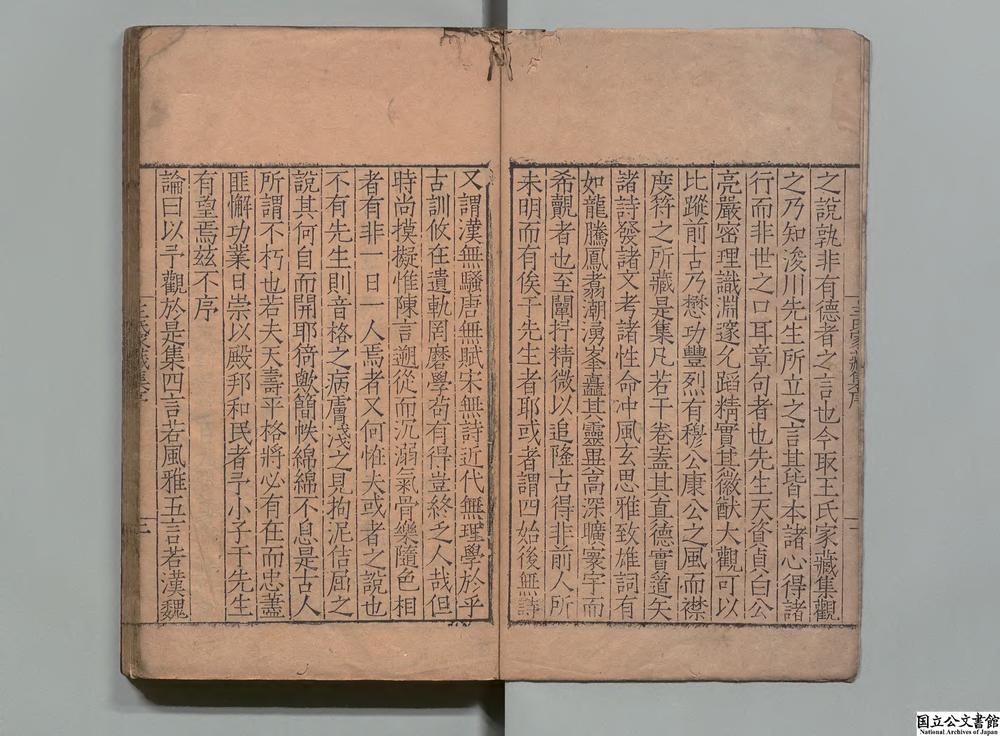 之說孰非有德者之言也今取王氏家藏集觀
之乃知浚川先生所立之言其皆本諸心得諸
行而非世之口耳章句者也先生天資貞白公
亮嚴密理識淵邃允蹈精實其徽猷大觀可以
比蹤前古乃懋功豐烈有穆公康公之風而襟
度符之所藏是集凡若干卷蓋其直德實道矢
諸詩發諸文考諸性命冲風玄思雅致雄詞有
如龍騰鳳翥潮湧峯矗其靈畀高深曠寥宇而
希覿者也至闡抒精微以追隆古得非前人所
未明而有俟于先生者耶或者謂四始後無詩
王氏家藏集序
又謂漢無騷唐無賦宋無詩近代無理學於乎
古訓攸在遺軌罔磨學苟有得豈終之人哉但
時尚摸擬惟陳言遡從而沉溺氣骨樂隨色相
者有非一日一人焉者又何恠夫或者之說也
不有先生則音格之病膚淺之見拘泥佶屈之
說其何自而開耶猗歟簡帙綿綿不息是古人
所謂不朽也若夫天壽平格將必有在而忠藎
匪懈功業日崇以殿邦和民者予小子于先生
有望焉兹不序
論曰以予觀於是集四言若風雅五言若漢魏
王氏家藏集序
国立公文書館
National Archives of Japan